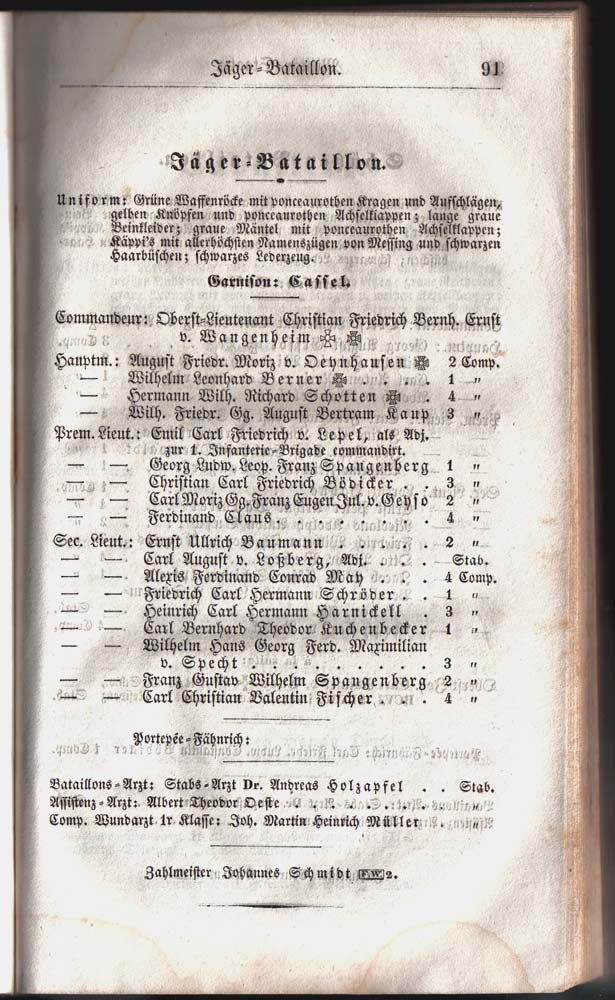 Jäger-Bataillon. 91
Jäger-Bataillon.
Uniform: Grüne Waffenröcke mit ponceaurothen Kragen und Aufschlägen,
gelben Knöpfen und ponceaurothen Achselklappen; lange graue
Beinkleider; graue Mäntel mit ponceaurothen Achselklappen;
Käppi's mit allerhöchsten Namenszügen von Messing und schwarzen
Haarbüschen; schwarzes Lederzeug.
Garnison: Cassel.
Commandeur: Oberst-Lieutenant Christian Friedrich Bernh. Ernst
v. Wangenheim
Hauptm.: August Friedr. Moriz v. Oeynhausen 2 Comp.
— Wilhelm Leonhard Berner . . . . 1 „
— Hermann Wilh. Richard Schotten . 4 „
— Wilh. Friedr. Gg. August Bertram Kaup 3 „
Prem. Lieut.: Emil Carl Friedrich v. Lepel, als Adj.
zur 1. Infanterie-Brigade commandirt.
— — Georg Ludw. Leop. Franz Spangenberg 1 „
— — Christian Carl Friedrich Bödicker . . 3 „
— — Carl Moriz Gg. Franz Eugen Jul. v. Geyso 2 „
— — Ferdinand Claus. . . . . . . . . 4 „
Sec. Lieut.: Ernst Ullrich Baumann . . . . . 2 „
— — Carl August v. Loßberg, Adj. . . . Stab.
— — Alexis Ferdinand Conrad May . . . 4 Comp.
— — Friedrich Carl Hermann Schröder . . 1 „
— — Heinrich Carl Hermann Harnickell . 3 „
— — Carl Bernhard Theodor Kuchenbecker 1 „
— — Wilhelm Hans Georg Ferd. Maximilian
v. Specht . . . . . . . . . 3 „
— — Franz Gustav Wilhelm Spangenberg 2 „
— — Carl Christian Valentin Fischer . . . 4 „
Portepée-Fähnrich:
Bataillons-Arzt: Stabs-Arzt Dr. Andreas Holzapfel . . Stab.
Assistenz-Arzt: Albert Theodor Oeste . . . . . . . „
Comp. Wundarzt 1r Klasse: Joh. Martin Heinrich Müller . . „
Zahlmeister Johannes Schmidt F.W. 2.